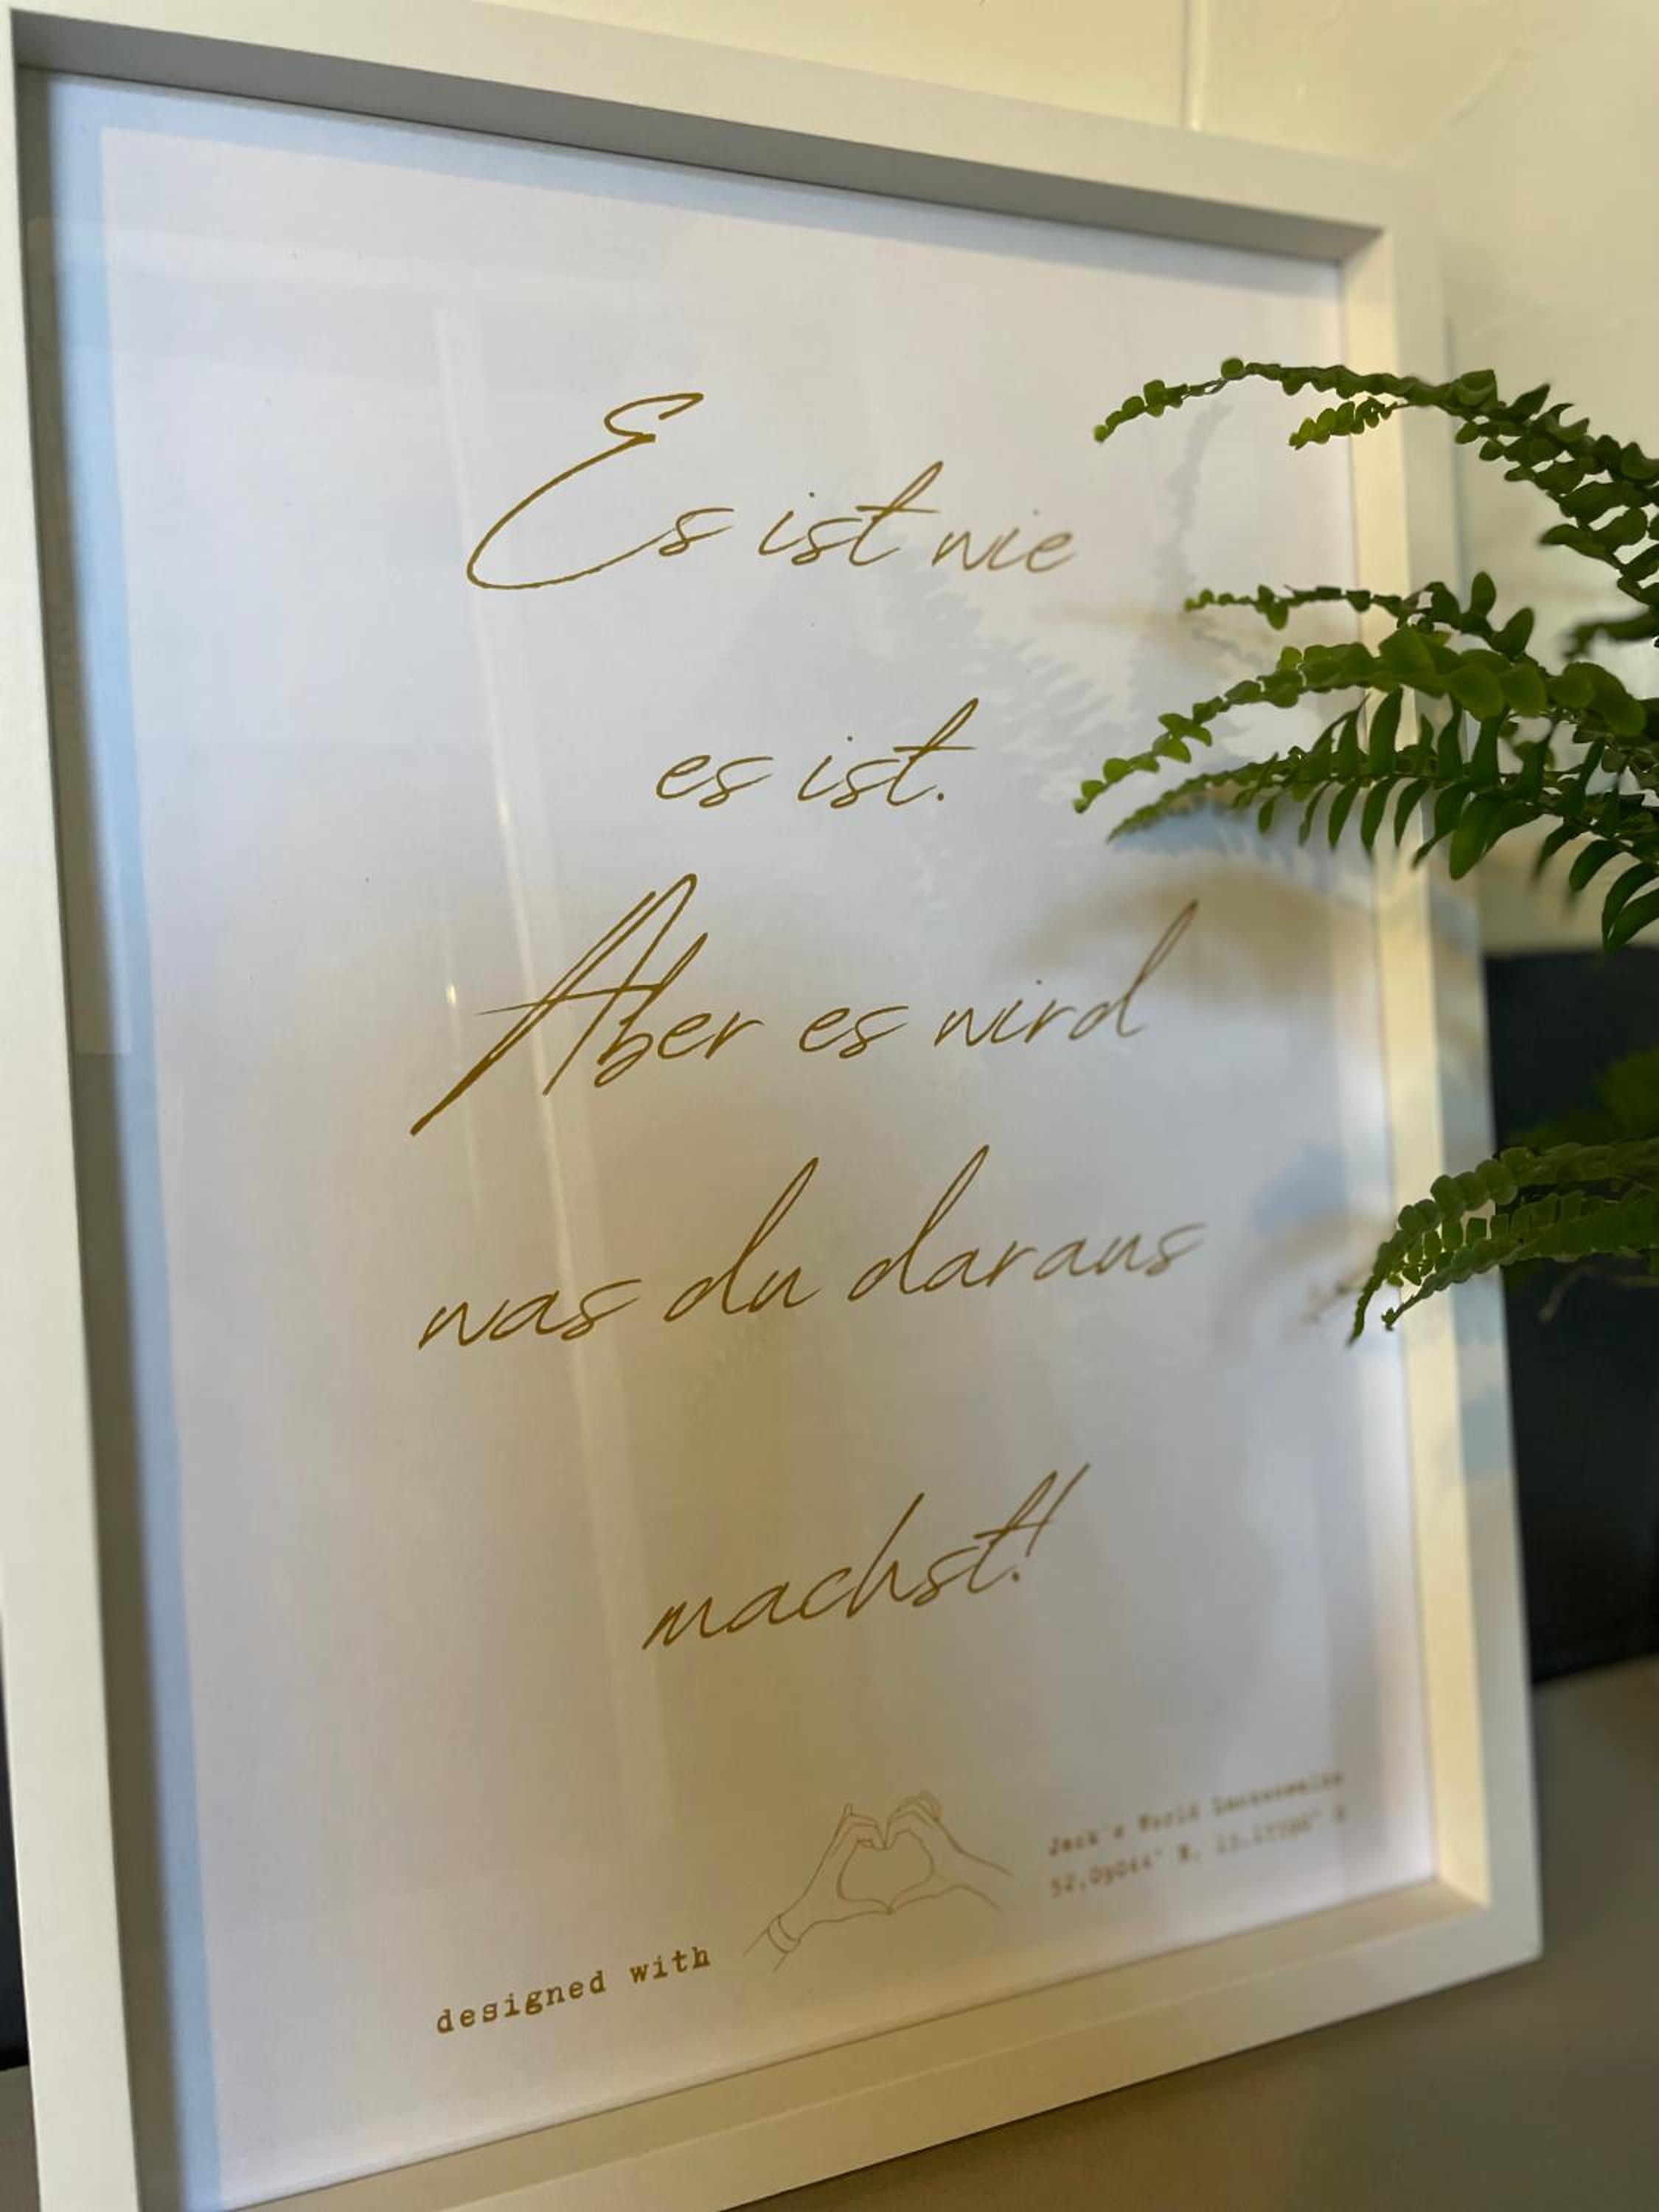 Es ist nie
es ist.
Aber es wird
was du daraus
machst!
designed with
Jack's World